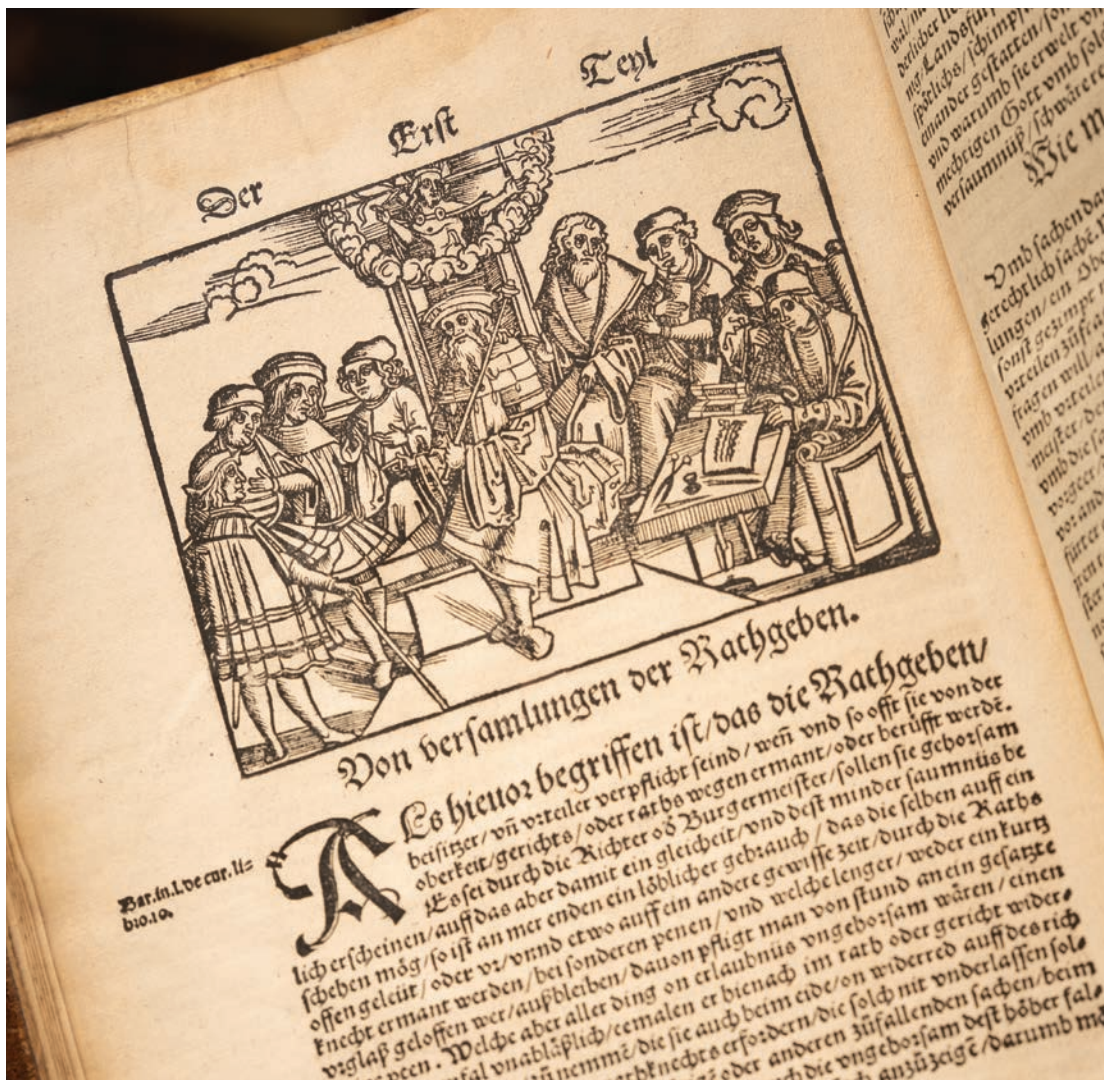 Der Erst Teyl
Von versamlungen der Rathgeben.
ALs hieuor begriffen ist/das die Rathgeben/
beisitzer/vñ vrteiler verpflicht seind/weñ vnd so offt sie von der
oberkeit/gerichts/oder raths wegen ermant/oder berůfft werdē.
Es sei durch die Richter oď Burgermeister/sollen sie gehorsam
lich erscheinen/auff das aber damit ein gleicheit/vnd dest minder saumnüs be
schehen mög/so ist an mer enden ein löblicher gebrauch/das die selben auff ein
offen geleüt/oder vr/vnnd etwo auff ein andere gewisse zeit/durch die Raths
knecht ermant werden/bei sonderen penen/vnd welche lenger/weder ein kurtz
vrglaß geloffen wer/außbleiben/dauon pfligt man von stund an ein gesatzte
peen. Welche aber aller ding on erlaubnüs vngehorsam wären/einen
fal vnabläßlich/eemalen er hienach im rath oder gericht wider-
zů nemmē/die sie auch beim eide/on widerred auff des rich
rathknechts erfordern/die solch nit vnderlassen sol-
oder anderen zůfallenden sachen/beim
die vngehorsam dest höher fal-
anzůzeigē/darumb
Bar.in.l.de cur.li-
bro.10.
derlicher
Landsfür
spötlichs/schimpf
einander gestatten/sol
vnd warumb sie erwelt
mechtigen Gott vmb
versaumnüß/schwäre
Wie
Vmb sachen
gerechtlich sache.
lungen/ein
sonst gezimpt
vrteilen
fragen will
vmb vrteilen
meister
vmb die
vor